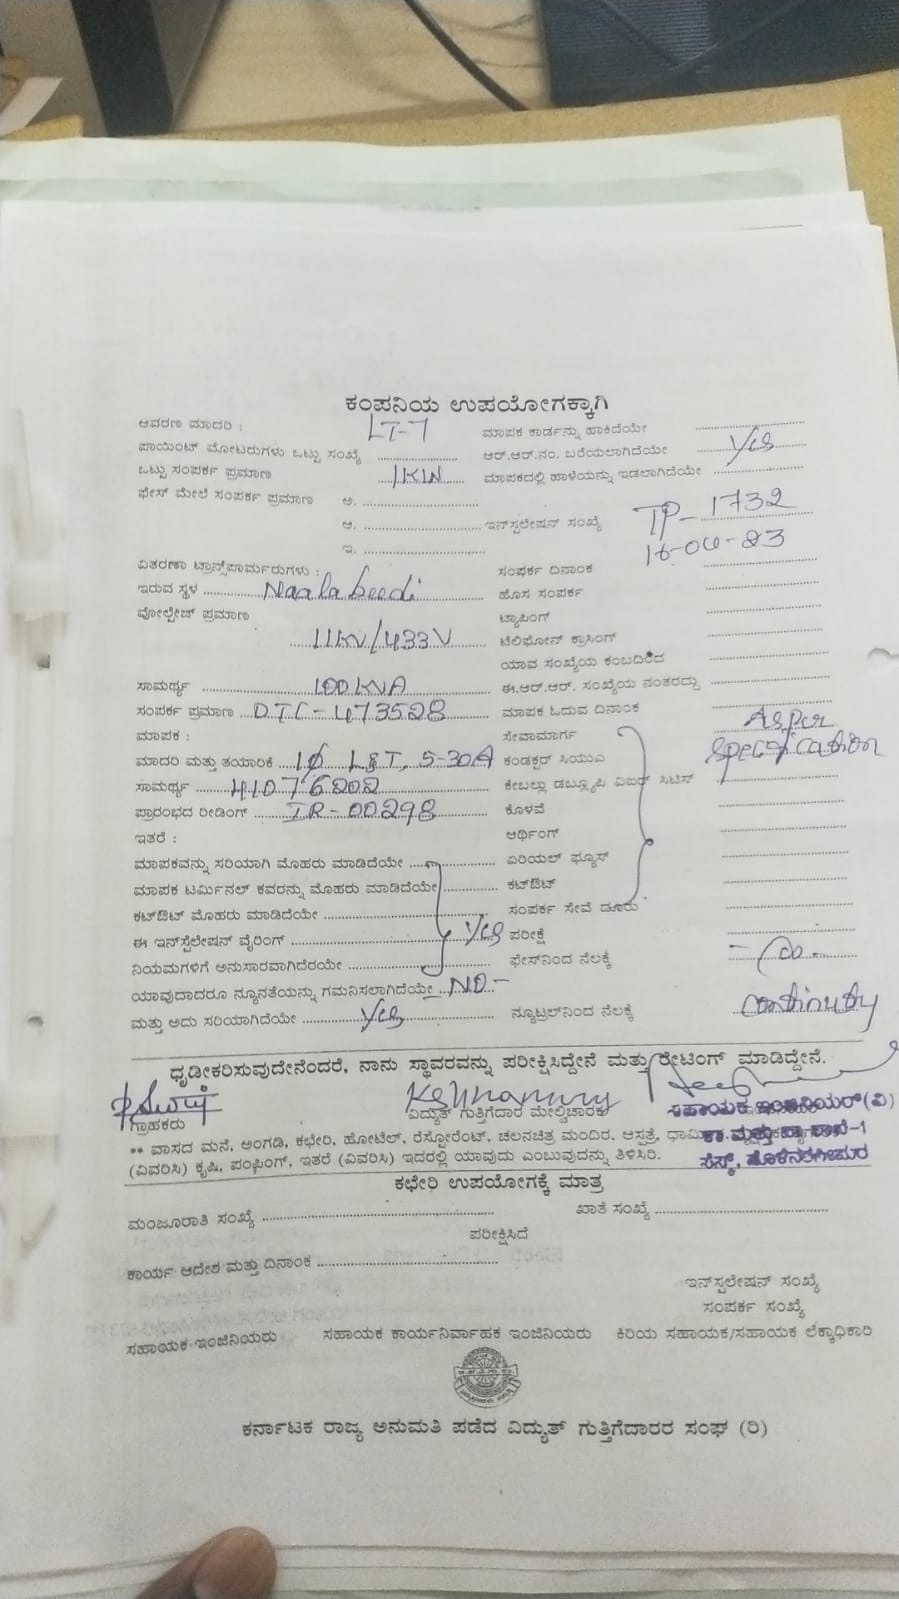 ಕಂಪನಿಯ ಉಪಯೋಗಕ್ಕಾಗಿ
ಆವರಣ ಮಾದರಿ : LT-7 ಮಾಪಕ ಕಾರ್ಡನ್ನು ಹಾಕಿದೆಯೇ
ಪಾಯಿಂಟ್ ಮೋಟರುಗಳು ಒಟ್ಟು ಸಂಖ್ಯೆ ಆರ್.ಆರ್.ನಂ. ಬರೆಯಲಾಗಿದೆಯೇ Yes
ಒಟ್ಟು ಸಂಪರ್ಕ ಪ್ರಮಾಣ 1KW ಮಾಪಕದಲ್ಲಿ ಹಾಳೆಯನ್ನು ಇಡಲಾಗಿದೆಯೇ
ಫೇಸ್ ಮೇಲೆ ಸಂಪರ್ಕ ಪ್ರಮಾಣ ಅ.
ಆ. ಇನ್‌ಸ್ಟಲೇಷನ್ ಸಂಖ್ಯೆ TP-1732
ಇ. 16-04-23
ವಿತರಣಾ ಟ್ರಾನ್ಸ್‌ಪಾರ್ಮರುಗಳು : ಸಂಪರ್ಕ ದಿನಾಂಕ
ಇರುವ ಸ್ಥಳ Naalabeedi ಹೊಸ ಸಂಪರ್ಕ
ವೋಲ್ಟೇಜ್ ಪ್ರಮಾಣ ಟ್ಯಾಪಿಂಗ್
11KV/433V ಟೆಲಿಫೋನ್ ಕ್ರಾಸಿಂಗ್
ಯಾವ ಸಂಖ್ಯೆಯ ಕಂಬದಿಂದ
ಸಾಮರ್ಥ್ಯ 100KVA ಈ.ಆರ್.ಆರ್. ಸಂಖ್ಯೆಯ ನಂತರದ್ದು
ಸಂಪರ್ಕ ಪ್ರಮಾಣ DTC-473528 ಮಾಪಕ ಓದುವ ದಿನಾಂಕ
ಮಾಪಕ : ಸೇವಾಮಾರ್ಗ As per
ಮಾದರಿ ಮತ್ತು ತಯಾರಿಕೆ 1ϕ L&T, 5-30A ಕಂಡಕ್ಟರ್ ಸಿಯುಎ specification
ಸಾಮರ್ಥ್ಯ 41076202 ಕೇಬಲ್ಲು ಡಬ್ಲ್ಯೂಪಿ ವಿಐಆರ್ ಸಿಟಿಸ್
ಪ್ರಾರಂಭದ ರೀಡಿಂಗ್ IR-00298 ಕೊಳವೆ
ಇತರೆ : ಆರ್ಥಿಂಗ್
ಮಾಪಕವನ್ನು ಸರಿಯಾಗಿ ಮೊಹರು ಮಾಡಿದೆಯೇ ಏರಿಯಲ್ ಫ್ಯೂಸ್
ಮಾಪಕ ಟರ್ಮಿನಲ್ ಕವರನ್ನು ಮೊಹರು ಮಾಡಿದೆಯೇ ಕಟ್‌ಔಟ್
ಕಟ್‌ಔಟ್ ಮೊಹರು ಮಾಡಿದೆಯೇ ಸಂಪರ್ಕ ಸೇವೆ ದೂರು
ಈ ಇನ್‌ಸ್ಟೆಲೇಷನ್ ವೈರಿಂಗ್ Yes ಪರೀಕ್ಷೆ
ನಿಯಮಗಳಿಗೆ ಅನುಸಾರವಾಗಿದೆರಯೇ ಫೇಸ್‌ನಿಂದ ನೆಲಕ್ಕೆ
ಯಾವುದಾದರೂ ನ್ಯೂನತೆಯನ್ನು ಗಮನಿಸಲಾಗಿದೆಯೇ NO-
ಮತ್ತು ಅದು ಸರಿಯಾಗಿದೆಯೇ Yes ನ್ಯೂಟ್ರಲ್‌ನಿಂದ ನೆಲಕ್ಕೆ continuity
ಧೃಡೀಕರಿಸುವುದೇನೆಂದರೆ, ನಾನು ಸ್ಥಾವರವನ್ನು ಪರೀಕ್ಷಿಸಿದ್ದೇನೆ ಮತ್ತು ರೇಟಿಂಗ್ ಮಾಡಿದ್ದೇನೆ.
ಗ್ರಾಹಕರು ವಿದ್ಯುತ್ ಗುತ್ತಿಗೆದಾರ ಮೇಲ್ವಿಚಾರಕ ಸಹಾಯಕ ಇಂಜಿನಿಯರ್(ವಿ)
** ವಾಸದ ಮನೆ, ಅಂಗಡಿ, ಕಛೇರಿ, ಹೋಟೆಲ್, ರೆಸ್ಟೋರೆಂಟ್, ಚಲನಚಿತ್ರ ಮಂದಿರ, ಆಸ್ಪತ್ರೆ, ಕಾ ಮತ್ತು ಪಾ ಶಾಖೆ-1
(ವಿವರಿಸಿ) ಕೃಷಿ, ಪಂಪಿಂಗ್, ಇತರೆ (ವಿವರಿಸಿ) ಇದರಲ್ಲಿ ಯಾವುದು ಎಂಬುವುದನ್ನು ತಿಳಿಸಿರಿ. ಸೆಸ್ಕ್, ಹೊಳೆನರಸೀಪುರ
ಕಛೇರಿ ಉಪಯೋಗಕ್ಕೆ ಮಾತ್ರ
ಮಂಜೂರಾತಿ ಸಂಖ್ಯೆ ಖಾತೆ ಸಂಖ್ಯೆ
ಪರೀಕ್ಷಿಸಿದೆ
ಕಾರ್ಯ ಆದೇಶ ಮತ್ತು ದಿನಾಂಕ
ಇನ್‌ಸ್ಟಲೇಷನ್ ಸಂಖ್ಯೆ
ಸಂಪರ್ಕ ಸಂಖ್ಯೆ
ಸಹಾಯಕ ಇಂಜಿನಿಯರು ಸಹಾಯಕ ಕಾರ್ಯನಿರ್ವಾಹಕ ಇಂಜಿನಿಯರು ಕಿರಿಯ ಸಹಾಯಕ/ಸಹಾಯಕ ಲೆಕ್ಕಾಧಿಕಾರಿ
ಕರ್ನಾಟಕ ರಾಜ್ಯ ಅನುಮತಿ ಪಡೆದ ವಿದ್ಯುತ್ ಗುತ್ತಿಗೆದಾರರ ಸಂಘ (ರಿ)